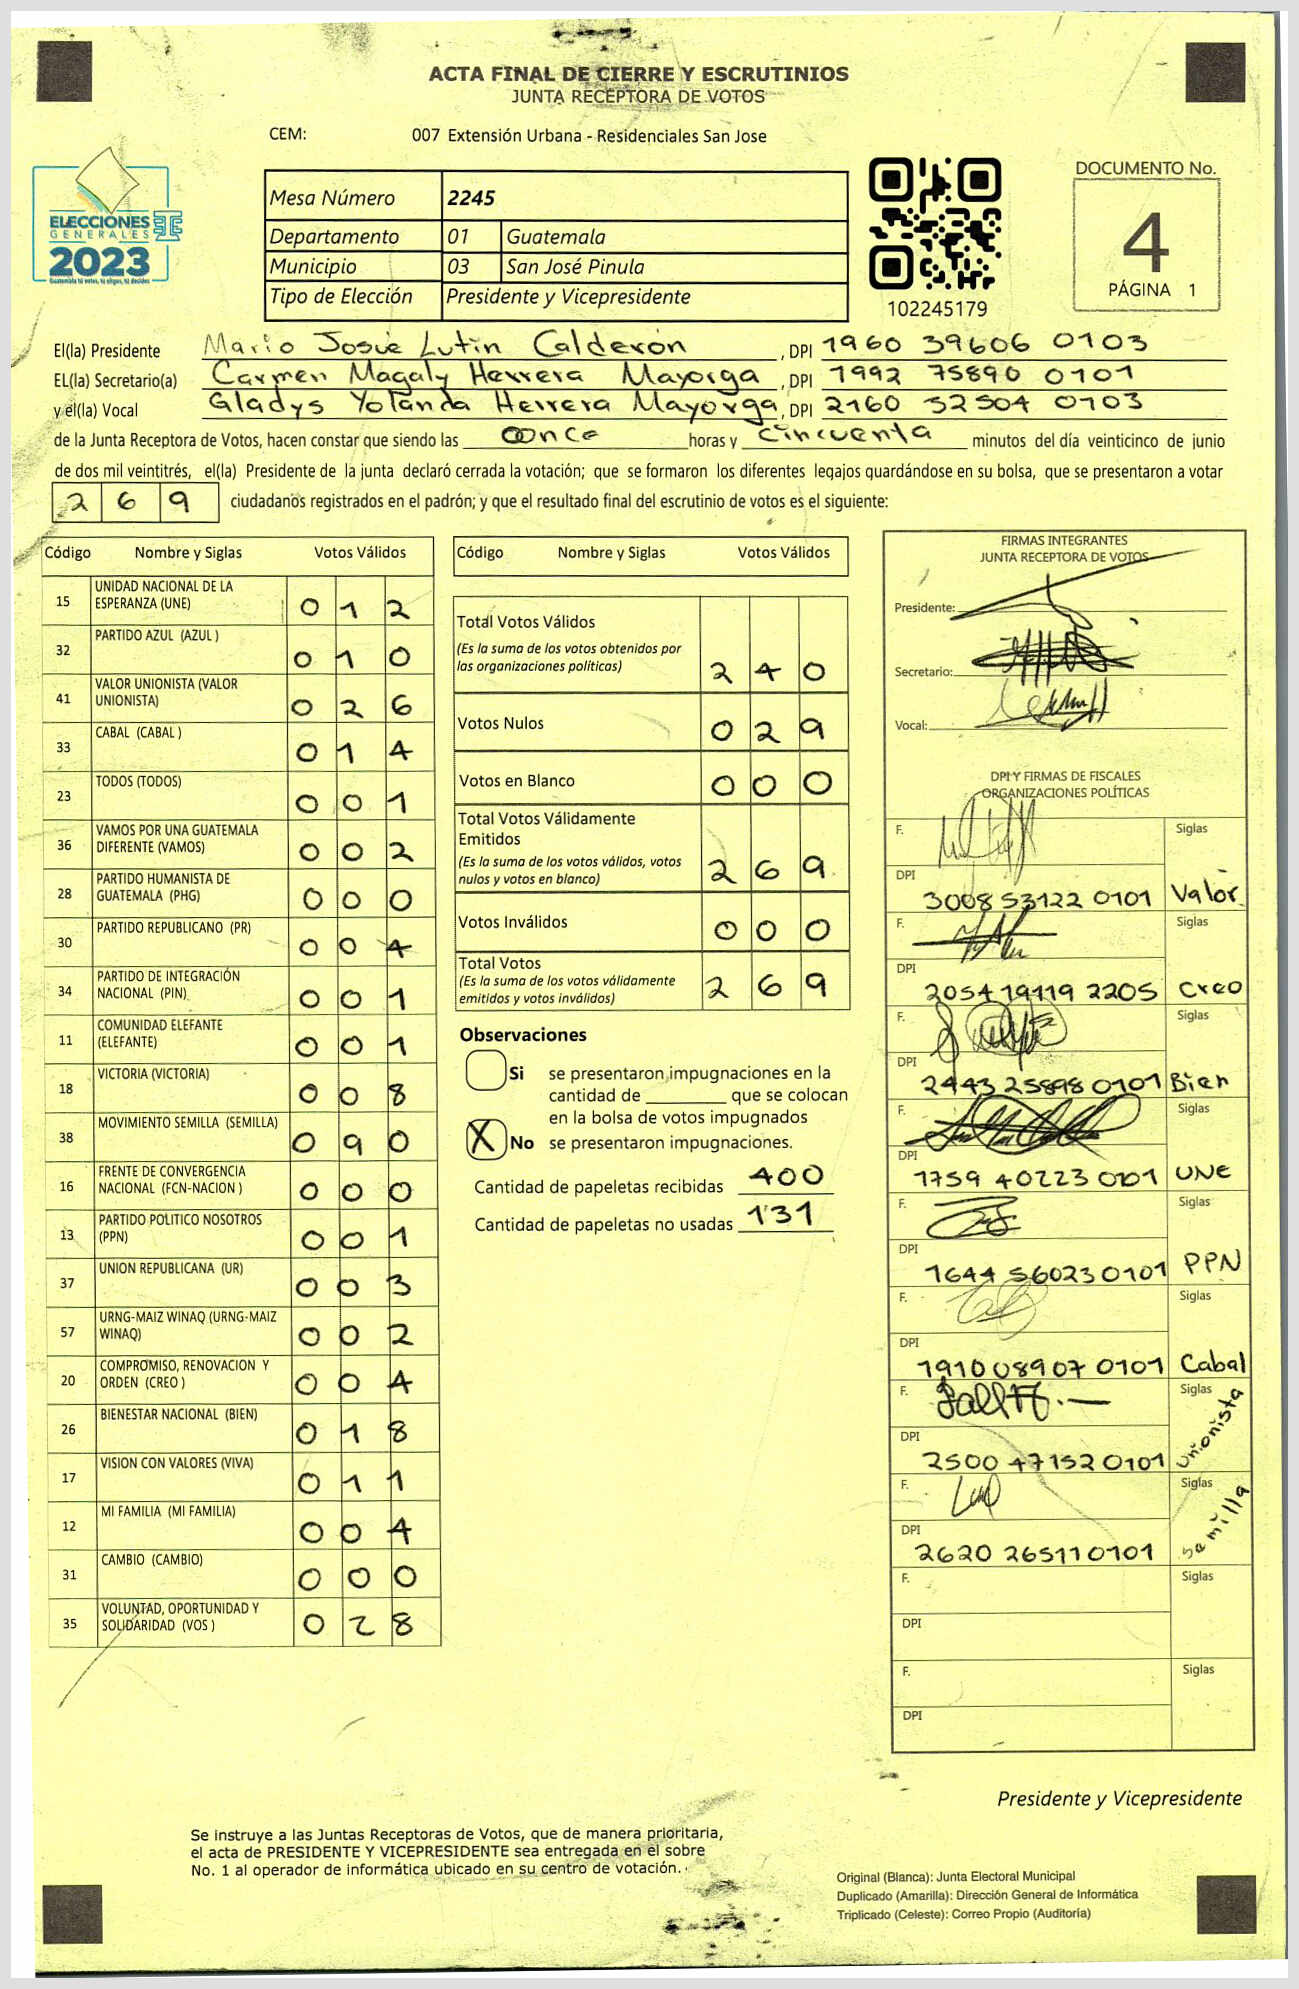 ACTA FINAL DE CIERRE Y ESCRUTINIOS
JUNTA RECEPTORA DE VOTOS
CEM: 007 Extensión Urbana - Residenciales San Jose
ELECCIONES
GENERALES
2023
Guatemala tú votas, tú eliges, tú decides
Mesa Número 2245
Departamento 01 Guatemala
Municipio 03 San José Pinula
Tipo de Elección Presidente y Vicepresidente
102245179
DOCUMENTO No.
4
PÁGINA 1
El(la) Presidente Mario Josué Lutin Calderón, DPI 1960 39606 0103
EL(la) Secretario(a) Carmen Magaly Herrera Mayorga, DPI 1992 75890 0101
y el(la) Vocal Gladys Yolanda Herrera Mayorga, DPI 2160 32504 0103
de la Junta Receptora de Votos, hacen constar que siendo las once horas y cincuenta minutos del día veinticinco de junio
de dos mil veintitrés, el(la) Presidente de la junta declaró cerrada la votación; que se formaron los diferentes legajos guardándose en su bolsa, que se presentaron a votar
269 ciudadanos registrados en el padrón; y que el resultado final del escrutinio de votos es el siguiente:
Código Nombre y Siglas Votos Válidos
15 UNIDAD NACIONAL DE LA ESPERANZA (UNE) 012
32 PARTIDO AZUL (AZUL ) 010
41 VALOR UNIONISTA (VALOR UNIONISTA) 026
33 CABAL (CABAL ) 014
23 TODOS (TODOS) 001
36 VAMOS POR UNA GUATEMALA DIFERENTE (VAMOS) 002
28 PARTIDO HUMANISTA DE GUATEMALA (PHG) 000
30 PARTIDO REPUBLICANO (PR) 004
34 PARTIDO DE INTEGRACIÓN NACIONAL (PIN) 001
11 COMUNIDAD ELEFANTE (ELEFANTE) 001
18 VICTORIA (VICTORIA) 008
38 MOVIMIENTO SEMILLA (SEMILLA) 090
16 FRENTE DE CONVERGENCIA NACIONAL (FCN-NACION ) 000
13 PARTIDO POLITICO NOSOTROS (PPN) 001
37 UNION REPUBLICANA (UR) 003
57 URNG-MAIZ WINAQ (URNG-MAIZ WINAQ) 002
20 COMPROMISO, RENOVACION Y ORDEN (CREO ) 004
26 BIENESTAR NACIONAL (BIEN) 018
17 VISION CON VALORES (VIVA) 011
12 MI FAMILIA (MI FAMILIA) 004
31 CAMBIO (CAMBIO) 000
35 VOLUNTAD, OPORTUNIDAD Y SOLIDARIDAD (VOS ) 028
Código Nombre y Siglas Votos Válidos
Total Votos Válidos
(Es la suma de los votos obtenidos por
las organizaciones políticas) 240
Votos Nulos 029
Votos en Blanco 000
Total Votos Válidamente
Emitidos
(Es la suma de los votos válidos, votos
nulos y votos en blanco) 269
Votos Inválidos 000
Total Votos
(Es la suma de los votos válidamente
emitidos y votos inválidos) 269
Observaciones
Si se presentaron impugnaciones en la
cantidad de ________ que se colocan
en la bolsa de votos impugnados
X No se presentaron impugnaciones.
Cantidad de papeletas recibidas 400
Cantidad de papeletas no usadas 131
FIRMAS INTEGRANTES
JUNTA RECEPTORA DE VOTOS
Presidente:
Secretario:
Vocal:
DPI Y FIRMAS DE FISCALES
ORGANIZACIONES POLÍTICAS
F. Siglas
DPI 3008 53122 0101 Valor
F. Siglas
DPI 2054 19119 2205 Creo
F. Siglas
DPI 2443 25898 0101 Bien
F. Siglas
DPI 1759 40223 0101 UNE
F. Siglas
DPI 1644 56023 0101 PPN
F. Siglas
DPI 1910 08907 0101 Cabal
F. Siglas
DPI 2500 47152 0101 Unionista
F. Siglas
DPI 2620 26511 0101 Semilla
F. Siglas
DPI
F. Siglas
DPI
Presidente y Vicepresidente
Se instruye a las Juntas Receptoras de Votos, que de manera prioritaria,
el acta de PRESIDENTE Y VICEPRESIDENTE sea entregada en el sobre
No. 1 al operador de informática ubicado en su centro de votación.
Original (Blanca): Junta Electoral Municipal
Duplicado (Amarilla): Dirección General de Informática
Triplicado (Celeste): Correo Propio (Auditoría)